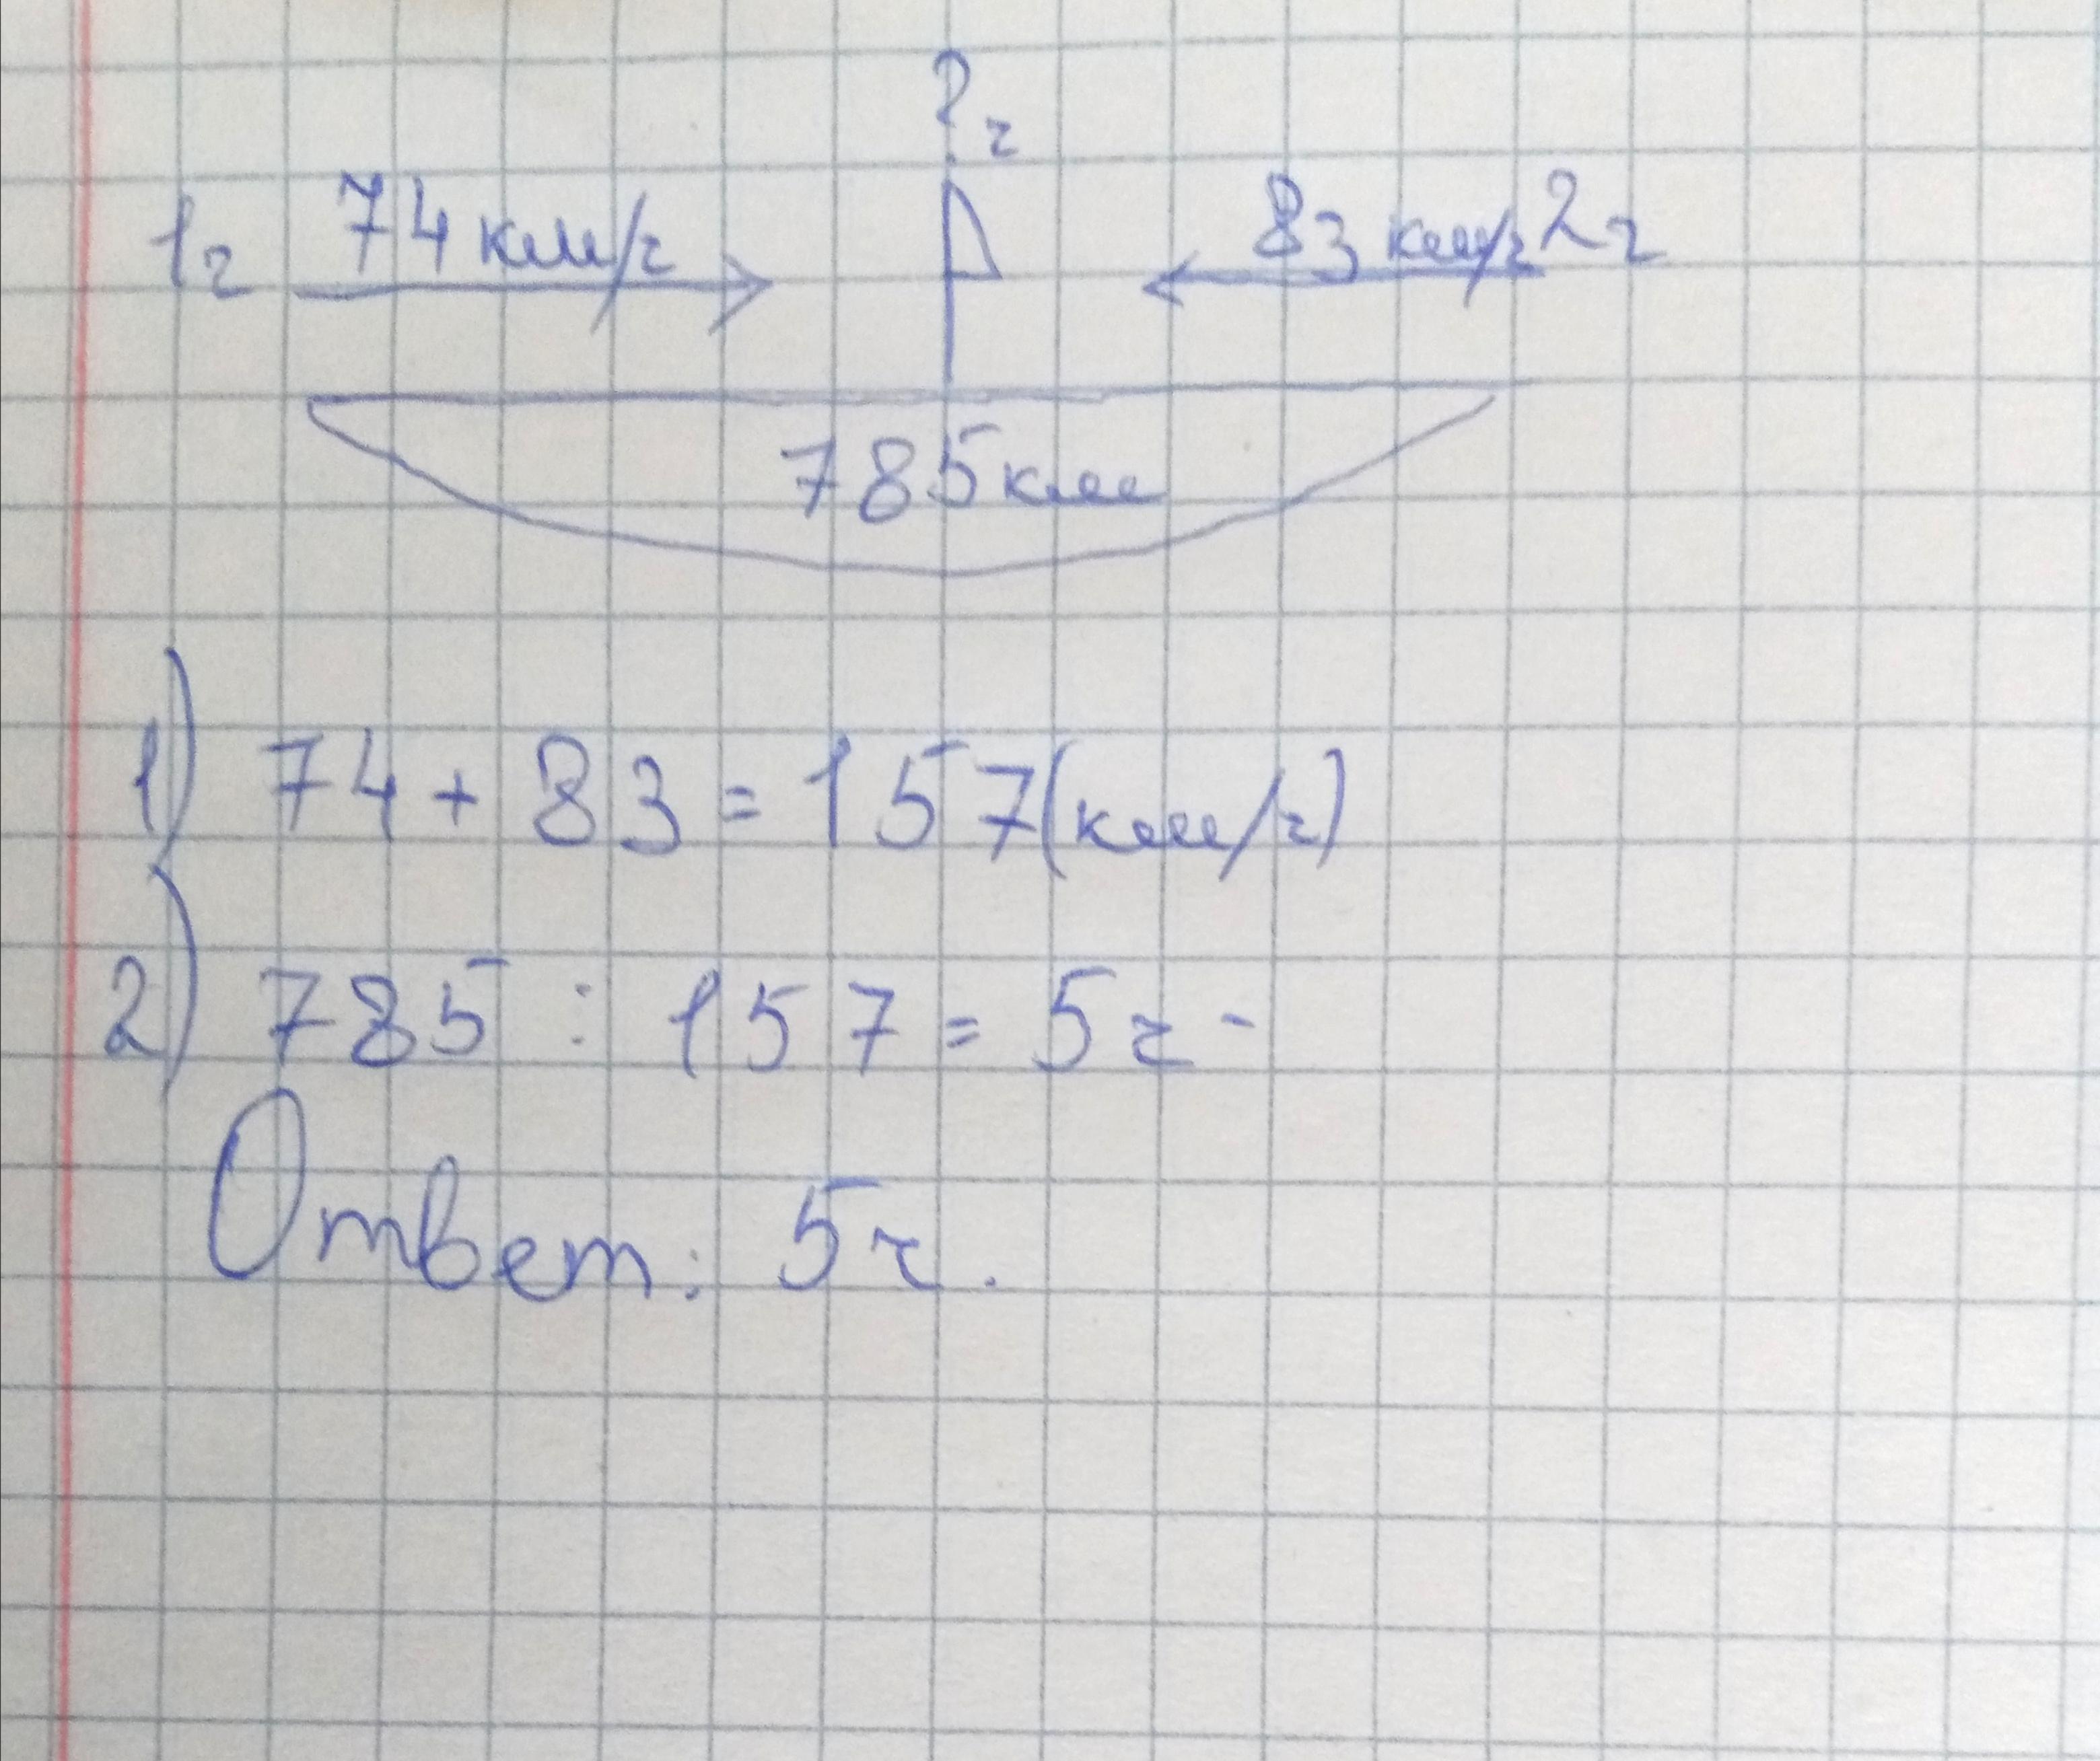 ? ч
1г 74 км/ч 83 км/ч 2г
785 км
1) 74 + 83 = 157 (км/ч)
2) 785 : 157 = 5 ч -
Ответ: 5 ч.